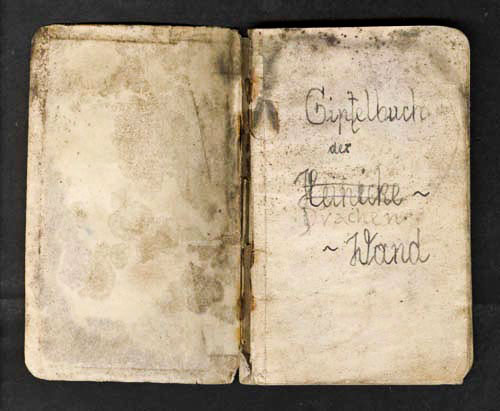 Gipfelbuch
der
Heinicke ~
Drachen
~ Wand